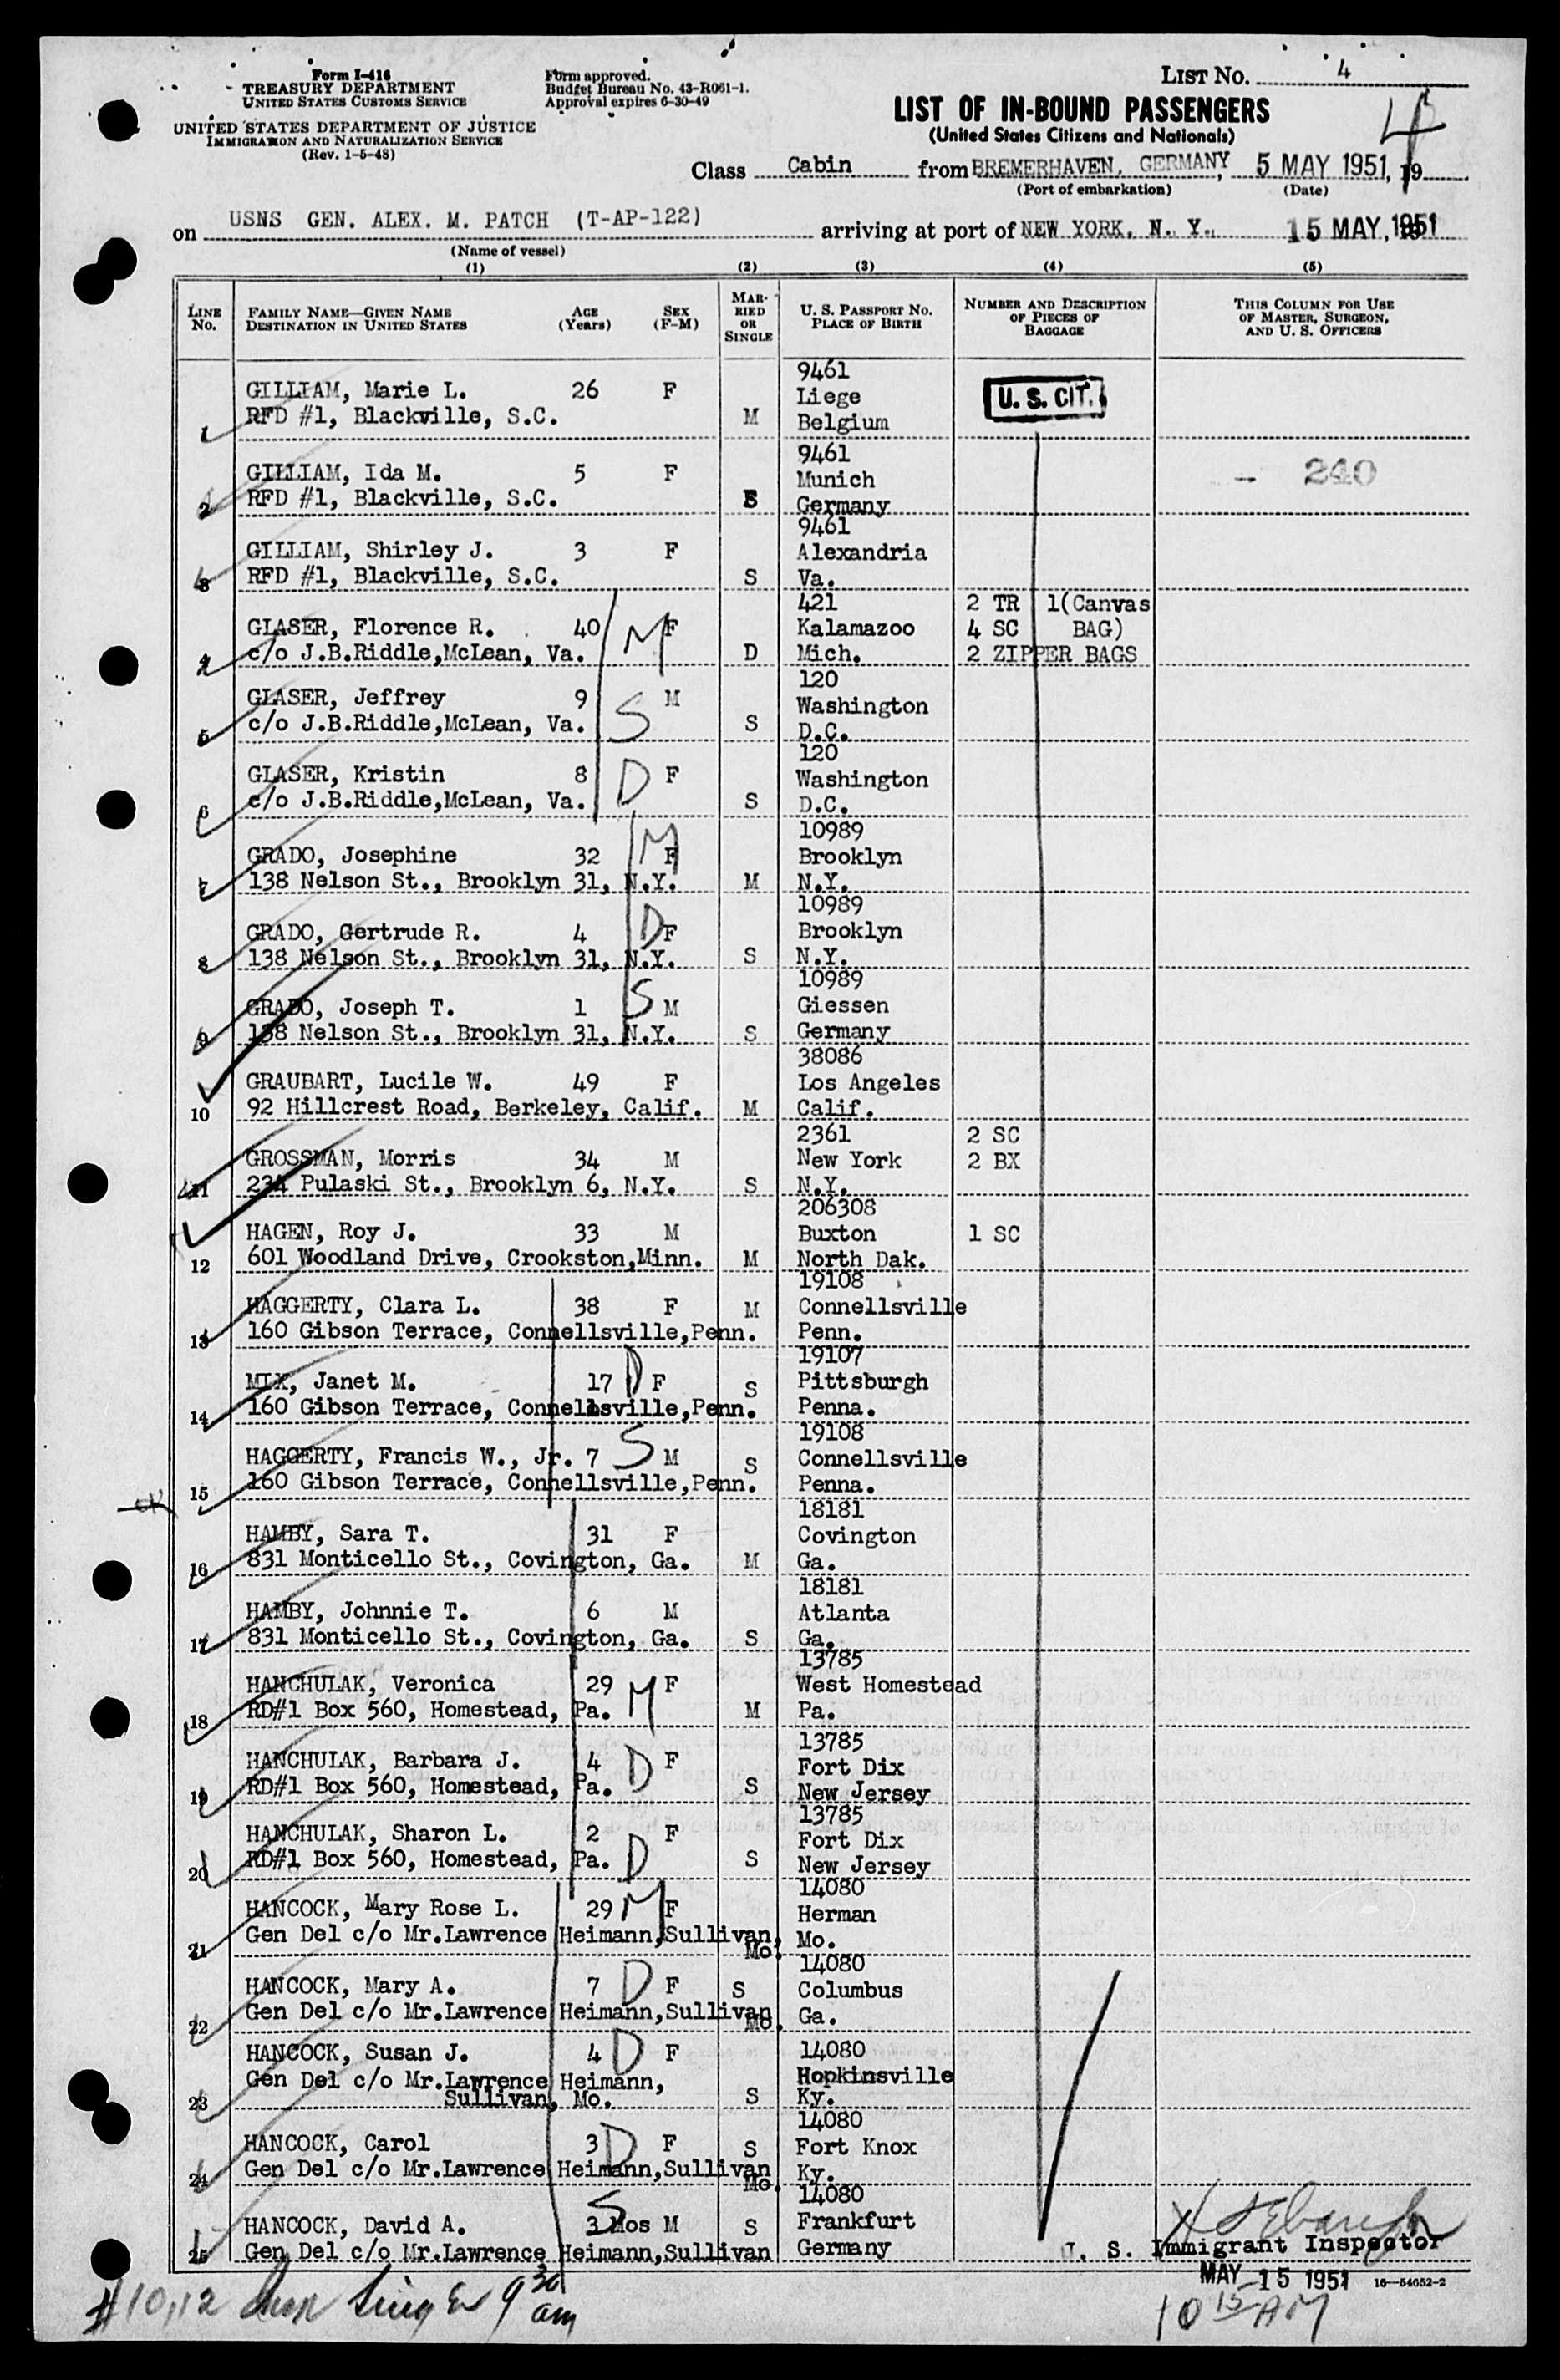 Form I-416
TREASURY DEPARTMENT
UNITED STATES CUSTOMS SERVICE
UNITED STATES DEPARTMENT OF JUSTICE
IMMIGRATION AND NATURALIZATION SERVICE
(Rev. 1-5-48)
Form approved.
Budget Bureau No. 43-R061-1.
Approval expires 6-30-49
LIST NO. 4
LIST OF IN-BOUND PASSENGERS
(United States Citizens and Nationals)
4
Class Cabin from BREMERHAVEN, GERMANY, 5 MAY 1951, 19
(Port of embarkation) (Date)
on USNS GEN. ALEX. M. PATCH (T-AP-122) arriving at port of NEW YORK, N. Y., 15 MAY, 1951
(Name of vessel)
(1) (2) (3) (4) (5)
LINE NO.
FAMILY NAME—GIVEN NAME
DESTINATION IN UNITED STATES
AGE (Years)
SEX (F-M)
MARRIED OR SINGLE
U. S. PASSPORT NO.
PLACE OF BIRTH
NUMBER AND DESCRIPTION OF PIECES OF BAGGAGE
THIS COLUMN FOR USE OF MASTER, SURGEON, AND U. S. OFFICERS
9461
GILLIAM, Marie L. 26 F Liege U. S. CIT.
1 RFD #1, Blackville, S.C. M Belgium
9461
GILLIAM, Ida M. 5 F Munich - 240
2 RFD #1, Blackville, S.C. S Germany
9461
GILLIAM, Shirley J. 3 F Alexandria
3 RFD #1, Blackville, S.C. S Va.
421 2 TR 1(Canvas
GLASER, Florence R. 40 M F Kalamazoo 4 SC BAG)
4 c/o J.B.Riddle,McLean, Va. D Mich. 2 ZIPPER BAGS
120
GLASER, Jeffrey 9 S M Washington
5 c/o J.B.Riddle,McLean, Va. S D.C.
120
GLASER, Kristin 8 D F Washington
6 c/o J.B.Riddle,McLean, Va. S D.C.
10989
GRADO, Josephine 32 M F Brooklyn
7 138 Nelson St., Brooklyn 31, N.Y. M N.Y.
10989
GRADO, Gertrude R. 4 D F Brooklyn
8 138 Nelson St., Brooklyn 31, N.Y. S N.Y.
10989
GRADO, Joseph T. 1 S M Giessen
9 138 Nelson St., Brooklyn 31, N.Y. S Germany
38086
GRAUBART, Lucile W. 49 F Los Angeles
10 92 Hillcrest Road, Berkeley, Calif. M Calif.
2361 2 SC
GROSSMAN, Morris 34 M New York 2 BX
11 234 Pulaski St., Brooklyn 6, N.Y. S N.Y.
206308
HAGEN, Roy J. 33 M Buxton 1 SC
12 601 Woodland Drive, Crookston,Minn. M North Dak.
19108
HAGGERTY, Clara L. 38 F M Connellsville
13 160 Gibson Terrace, Connellsville,Penn. Penn.
19107
MIX, Janet M. 17 D F S Pittsburgh
14 160 Gibson Terrace, Connellsville,Penn. Penna.
19108
HAGGERTY, Francis W., Jr. 7 S M S Connellsville
15 160 Gibson Terrace, Connellsville,Penn. Penna.
18181
HAMBY, Sara T. 31 F Covington
16 831 Monticello St., Covington, Ga. M Ga.
18181
HAMBY, Johnnie T. 6 M Atlanta
17 831 Monticello St., Covington, Ga. S Ga.
13785
HANCHULAK, Veronica 29 M F West Homestead
18 RD#1 Box 560, Homestead, Pa. M Pa.
13785
HANCHULAK, Barbara J. 4 D F Fort Dix
19 RD#1 Box 560, Homestead, Pa. S New Jersey
13785
HANCHULAK, Sharon L. 2 D F Fort Dix
20 RD#1 Box 560, Homestead, Pa. S New Jersey
14080
HANCOCK, Mary Rose L. 29 M F Herman
21 Gen Del c/o Mr.Lawrence Heimann,Sullivan, Mo. Mo.
14080
HANCOCK, Mary A. 7 D F S Columbus
22 Gen Del c/o Mr.Lawrence Heimann,Sullivan Mo. Ga.
14080
HANCOCK, Susan J. 4 D F Hopkinsville
23 Gen Del c/o Mr.Lawrence Heimann, Sullivan, Mo. S Ky.
14080
HANCOCK, Carol 3 D F S Fort Knox
24 Gen Del c/o Mr.Lawrence Heimann,Sullivan Mo. Ky.
14080
HANCOCK, David A. 3 Mos S M S Frankfurt
25 Gen Del c/o Mr.Lawrence Heimann,Sullivan Germany
U. S. Immigrant Inspector
MAY 15 1951 16—54652-2
# 10,12 9 30 am
10 15 AM